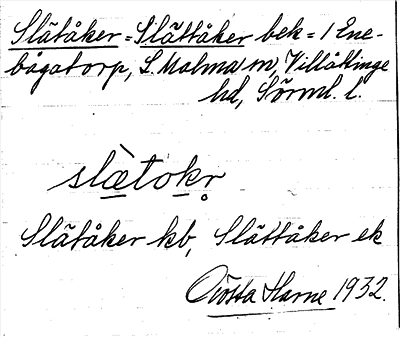 Slätåker = Slättåker bek = 1 Ene-
bågatorp, L. Malma sn, Villåttinge
hd, Sörml. l.
slætokr
Slätåker kb, Slättåker ek
Gösta Harne 1932.